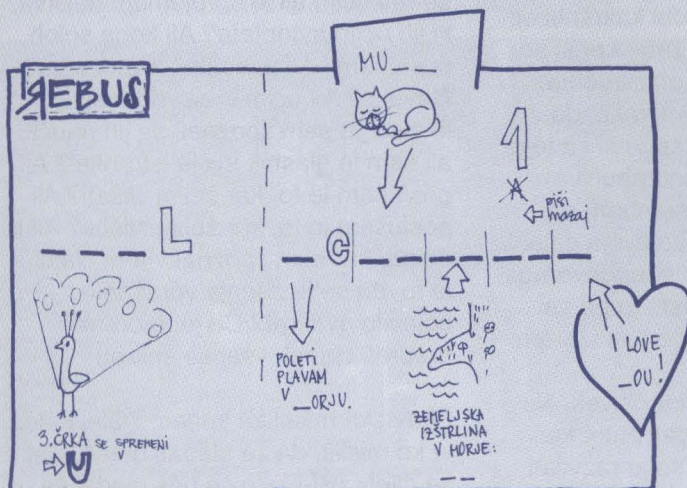 REBUS
MU_ _
1
A
piši
nazaj
_ _ _ _ L
_ C _ _ _ _ _ _ _
POLETI
PLAVAM
V _ORJU.
I LOVE
_OU!
ZEMELJSKA
IZŠTRLINA
V MORJE:
_ _
3. ČRKA SE SPREMENI
V
U